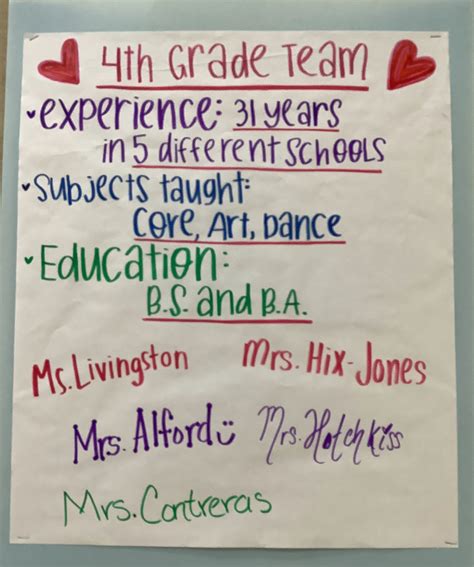 4th Grade Team
• experience: 31 years
in 5 different schools
• Subjects taught:
Core, Art, Dance
• Education:
B.S. and B.A.
Ms. Livingston
Mrs. Hix-Jones
Mrs. Alford
Mrs. Hotchkiss
Mrs. Contreras